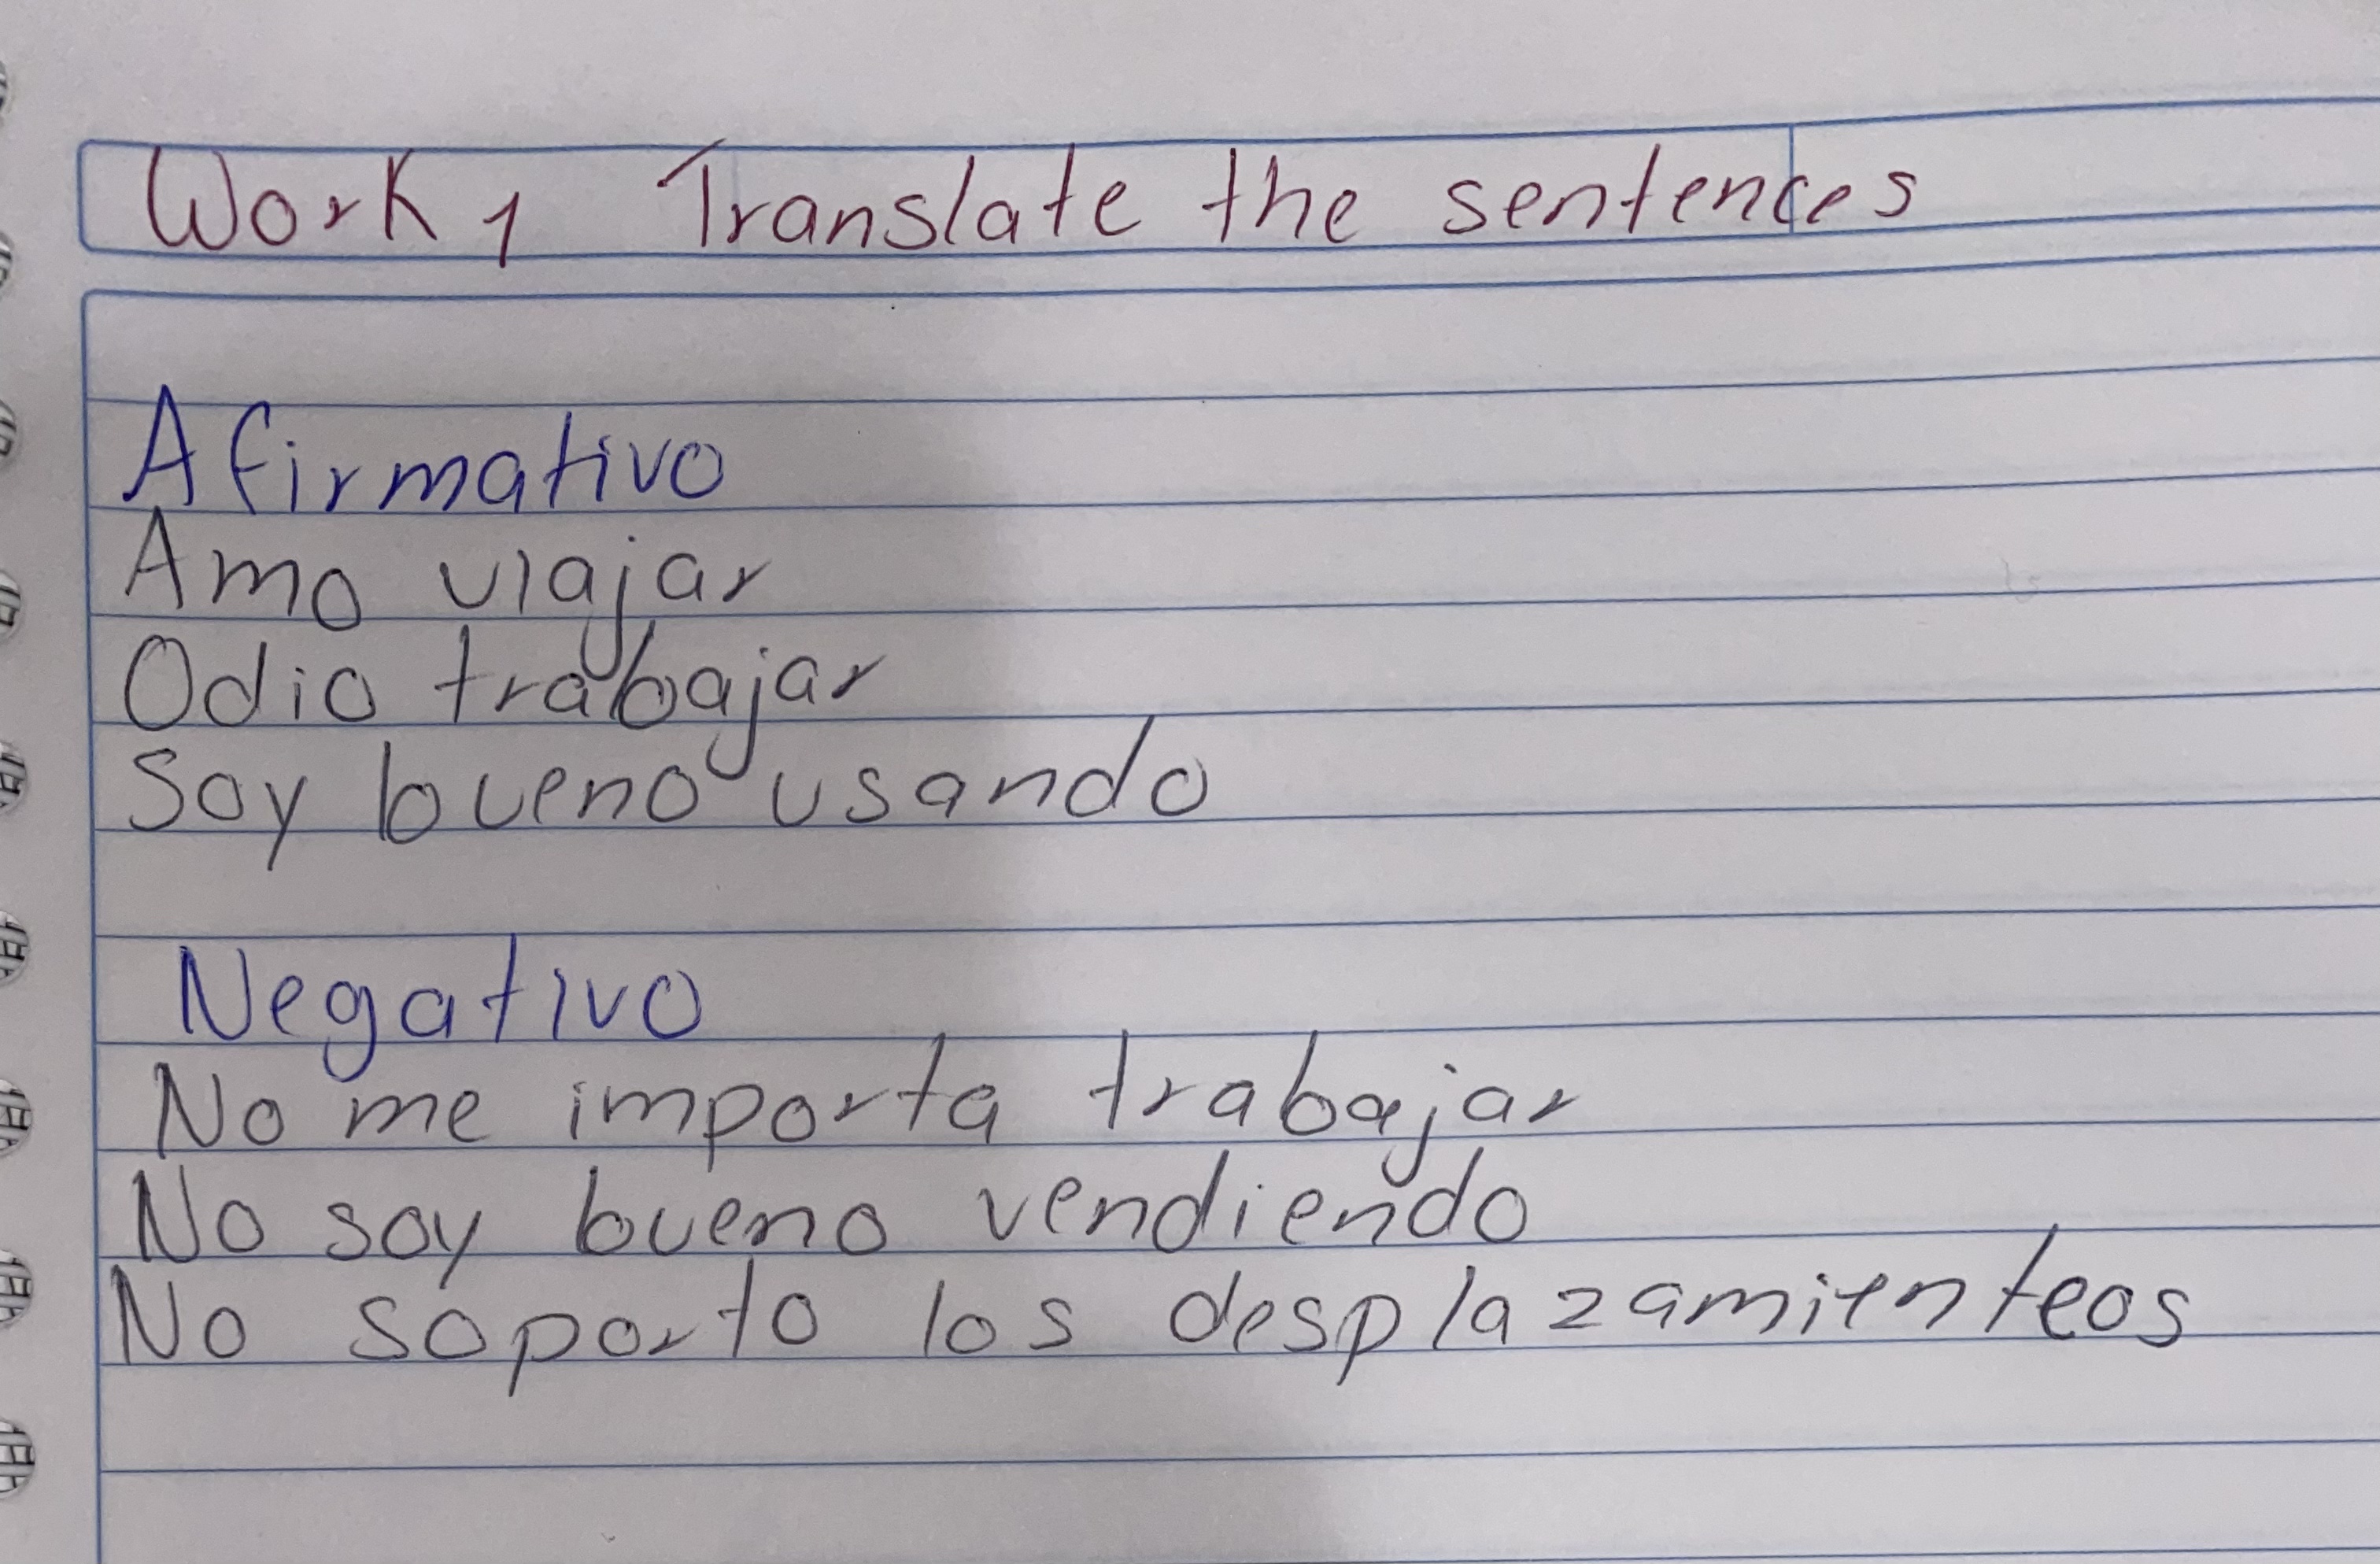 Work 1 Translate the sentences
Afirmativo
Amo viajar
Odio trabajar
Soy bueno usando
Negativo
No me importa trabajar
No soy bueno vendiendo
No soporto los desplazamienteos